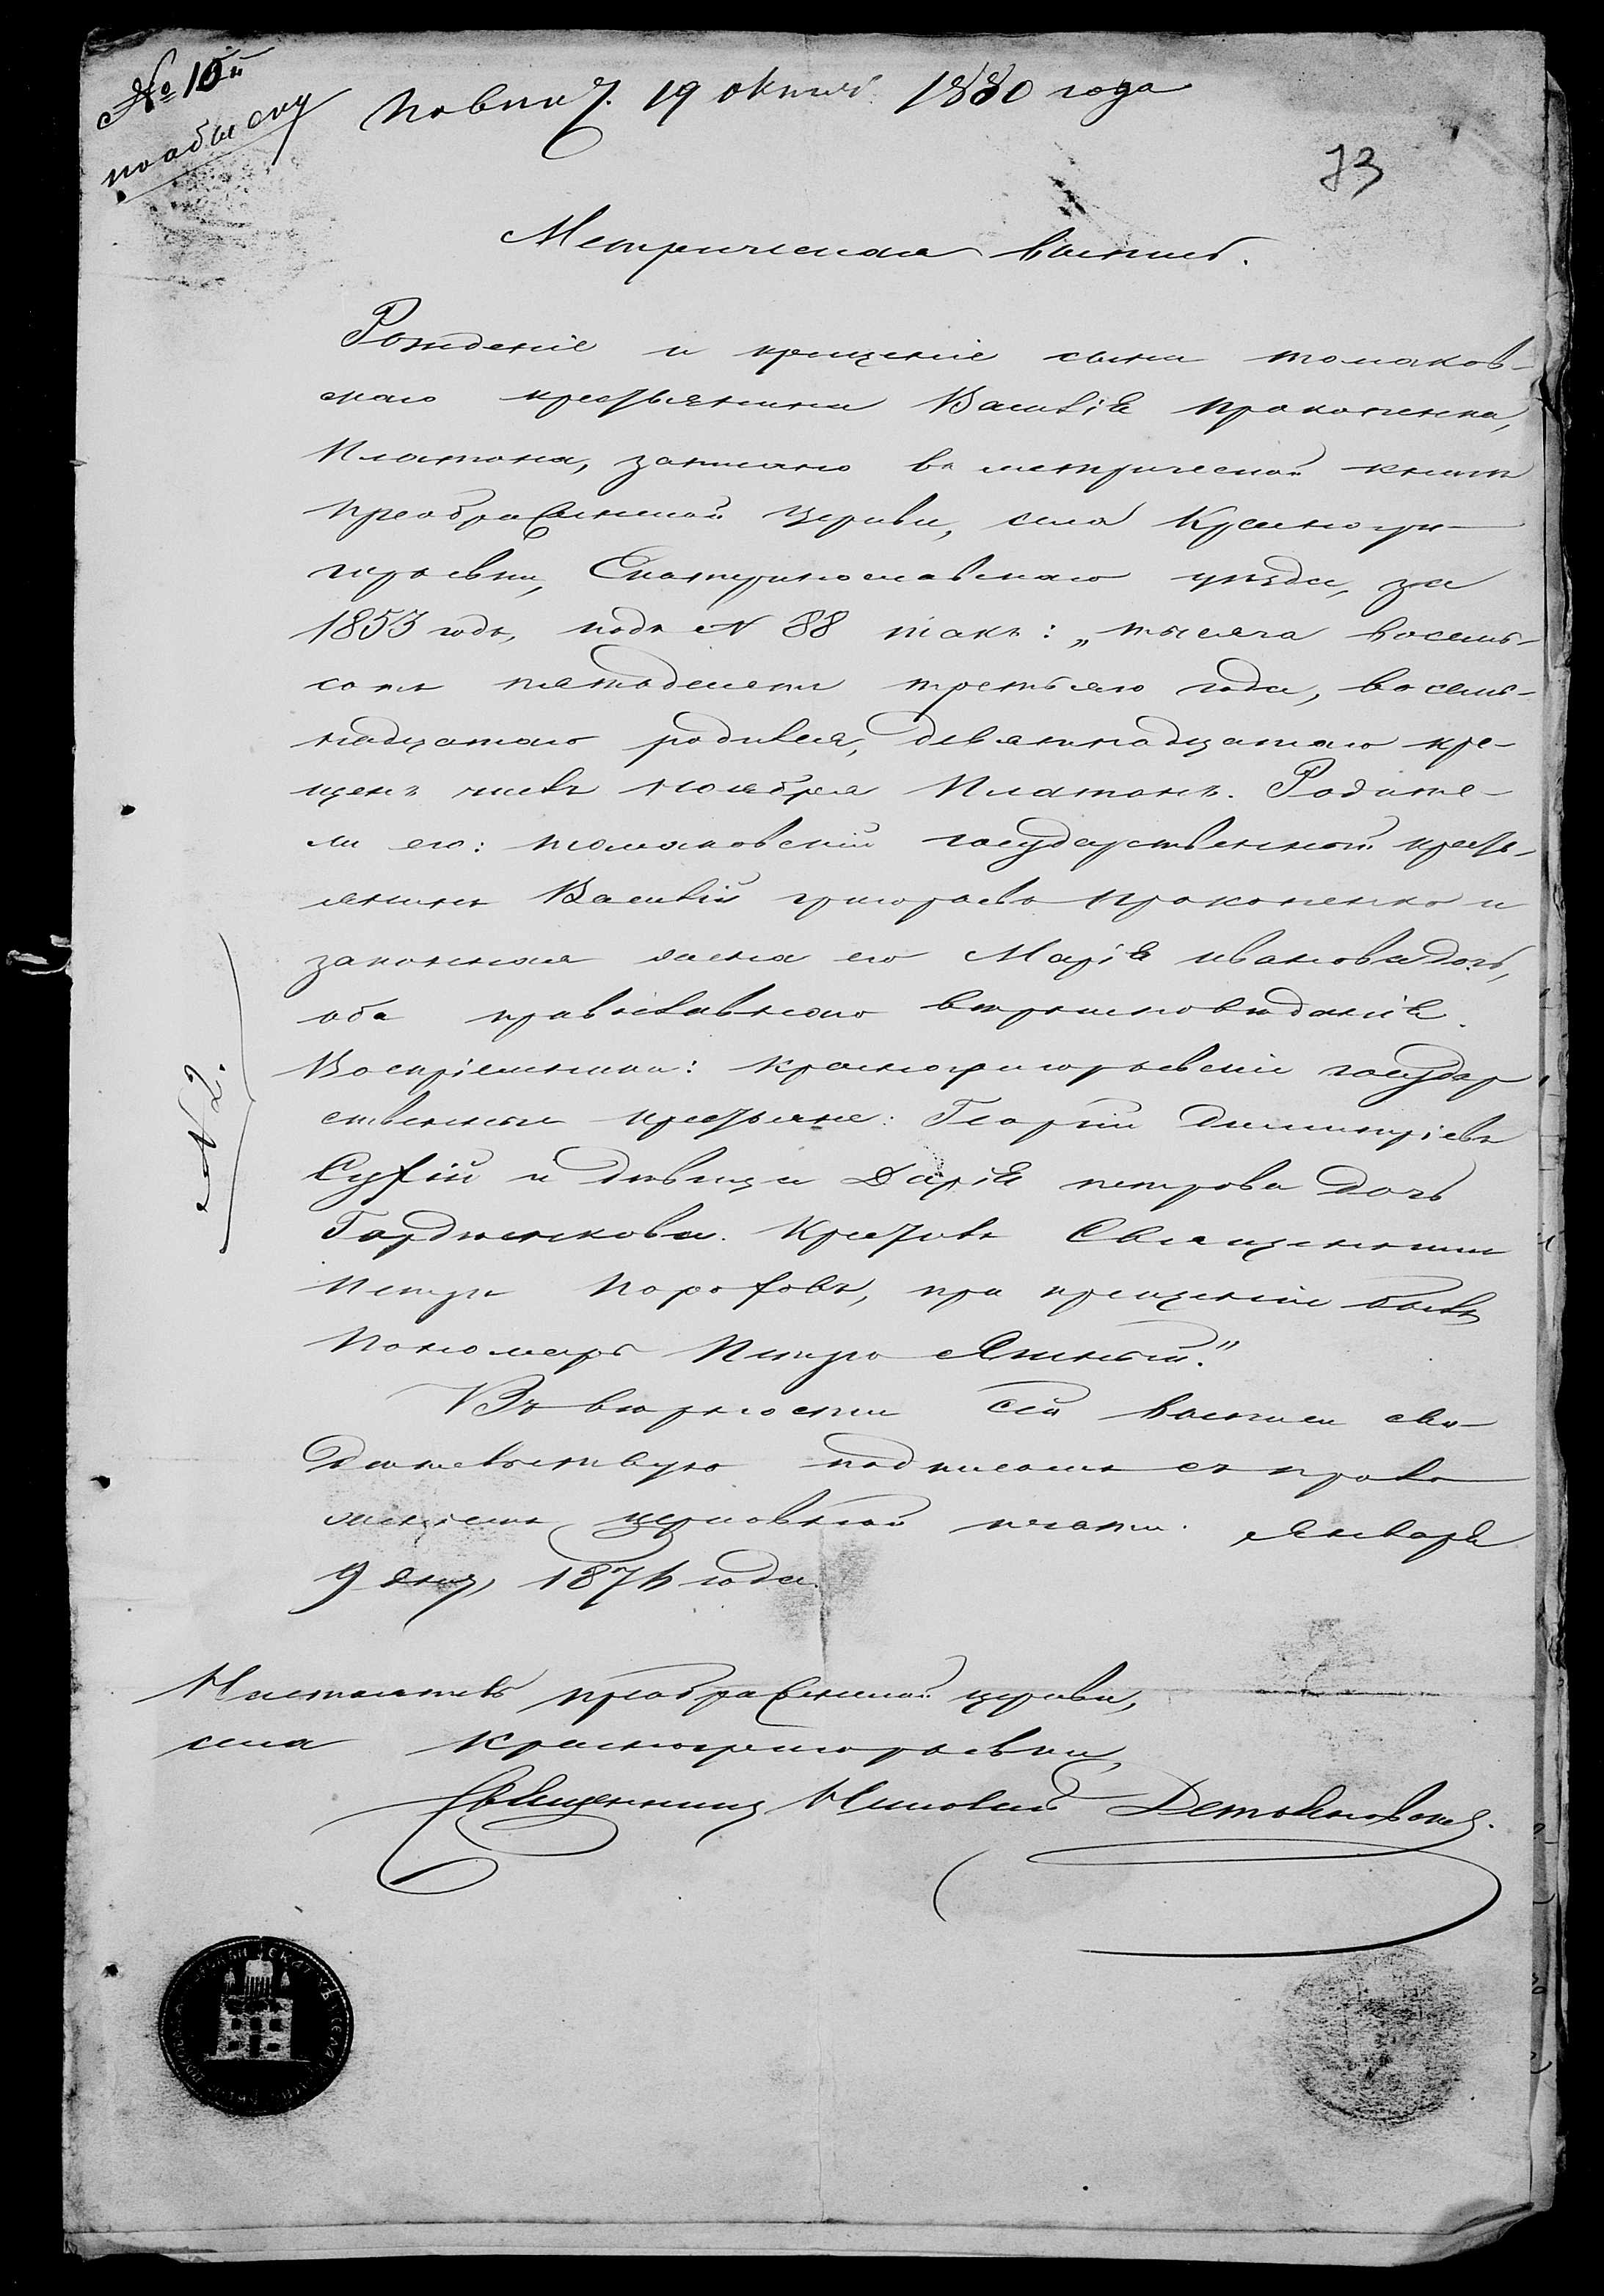 № 10й
По повин. 19 октяб. 1880 года
73
Метрическая выпись.
Рожденіе и крещеніе сына томаков-
скаго крестьянина Василія Прокопенка,
Платона, записано въ метрической книгѣ
Преображенской Церкви, села Красногри-
горьевки, Екатеринославскаго уѣзда, за
1853 годъ, подъ № 88 такъ: „тысяча восемь-
сотъ пятьдесятъ третьяго года, восем-
надцатаго родился, девятнадцатаго кре-
щенъ числъ Ноября Платонъ. Родите-
ли его: томаковскій государственный кресть-
янинъ Василій Григорьевъ Прокопенко и
законная жена его Марія Иванова дочь,
оба православнаго вѣроисповѣданія.
Воспріемники: красногригорьевскіе государ
ственные крестьяне: Георгій Димитріевъ
и дѣвица Дарія Петрова дочь
Гордѣенкова. Крестилъ Священникъ
Петръ при крещеніи былъ
Пономарь Петръ
Въ вѣрности сей выписи сви-
дѣтельствую подписомъ съ прило
женіемъ церковной печати. Января
9 дня, 1874 года.
№ 2.
Настоятель Преображенской церкви,
села Красногригорьевки,
Священникъ Николай